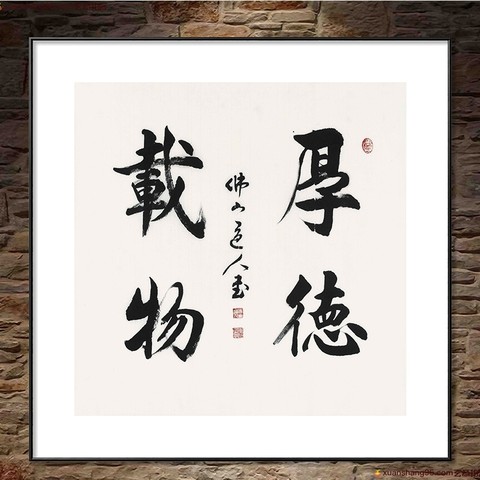 厚德
載物
佛山道人書
xuanshang99.com